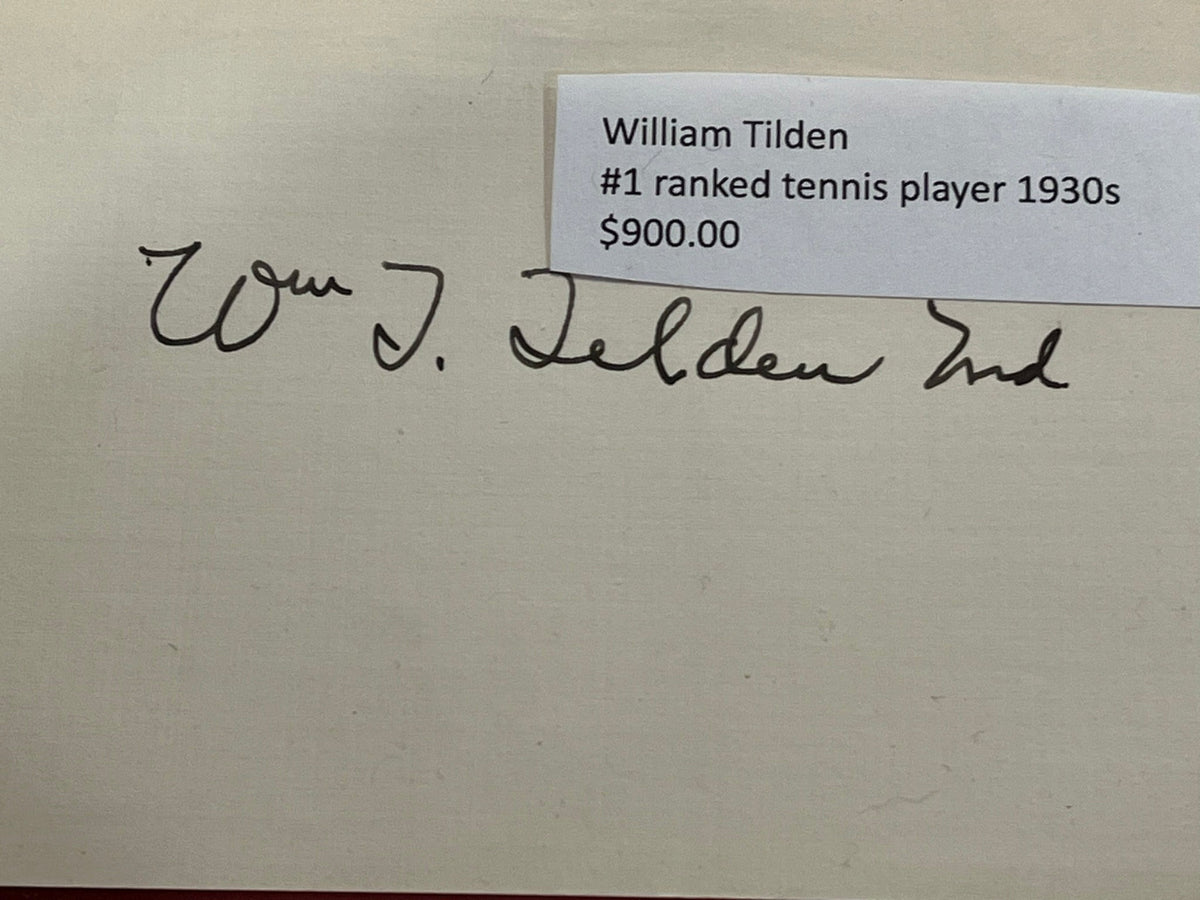 William Tilden
#1 ranked tennis player 1930s
$900.00
Wm T. Tilden 2nd